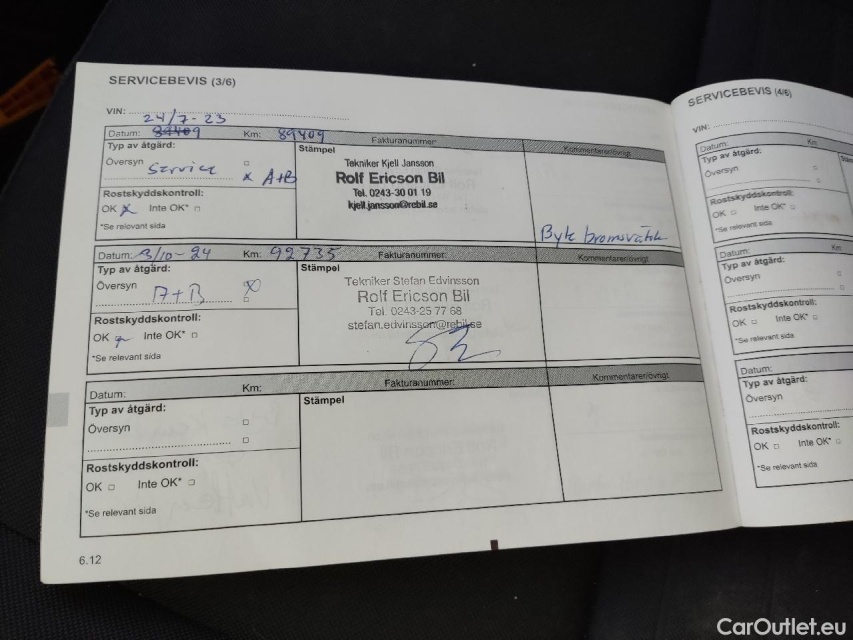 SERVICEBEVIS (3/6)
VIN:
24/7-23
Datum: 89409 Km: 89409 Fakturanummer: Kommentarer/övrigt
Typ av åtgärd:
Översyn
Service x A+B
Rostskyddskontroll:
OK x Inte OK*
*Se relevant sida
Stämpel
Tekniker Kjell Jansson
Rolf Ericson Bil
Tel. 0243-30 01 19
kjell.jansson@rebil.se
Byte bromsvätsk
Datum: 3/10-24 Km: 92735 Fakturanummer: Kommentarer/övrigt
Typ av åtgärd:
Översyn x
A+B
Rostskyddskontroll:
OK Inte OK*
*Se relevant sida
Stämpel
Tekniker Stefan Edvinsson
Rolf Ericson Bil
Tel: 0243-25 77 68
stefan.edvinsson@rebil.se
Datum: Km: Fakturanummer: Kommentarer/övrigt
Typ av åtgärd:
Översyn
Rostskyddskontroll:
OK Inte OK*
*Se relevant sida
Stämpel
6.12
SERVICEBEVIS (4/6)
VIN:
Datum: Km:
Typ av åtgärd:
Översyn
Rostskyddskontroll:
OK Inte OK*
*Se relevant sida
Datum: Km:
Typ av åtgärd:
Översyn
Rostskyddskontroll:
OK Inte OK*
*Se relevant sida
Datum:
Typ av åtgärd:
Översyn
Rostskyddskontroll:
OK Inte OK*
*Se relevant sida
CarOutlet.eu